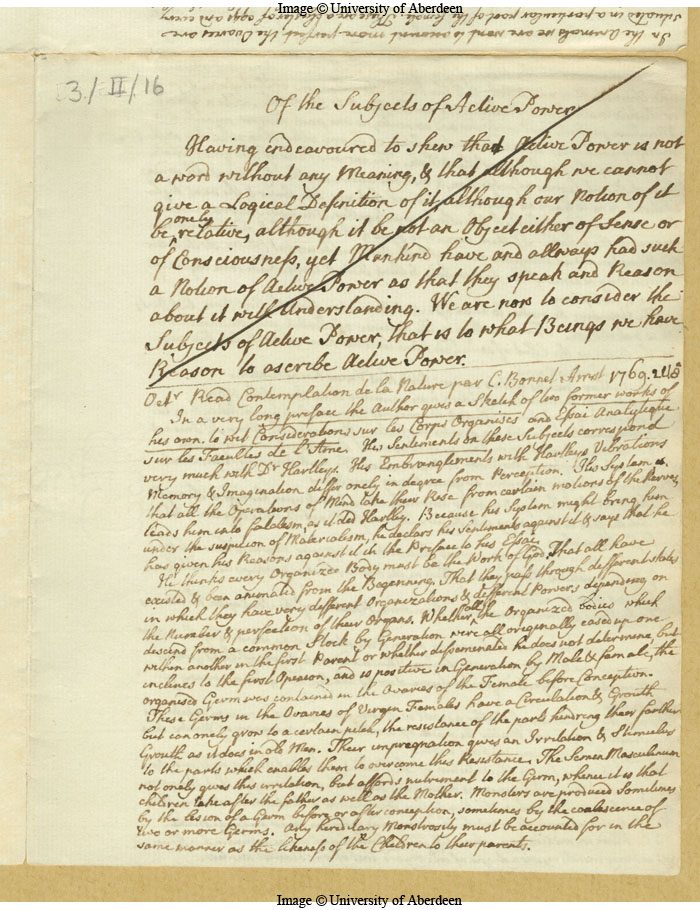 Image © University of Aberdeen
In the Animals we are wont to account more perfect, the Ovaries are
situated in a particular part of the female. These are a cluster of eggs and every
3/II/16
Of the Subjects of Active Power
Having endeavoured to shew that Active Power is not
a word without any Meaning, & that although we cannot
give a Logical Definition of it although our Notion of it
be only relative, although it be not an Object either of Sense or
of Consciousness, yet Mankind have and allways had such
a Notion of Active Power as that they speak and Reason
about it with Understanding. We are now to consider the
Subjects of Active Power, that is to what Beings we have
Reason to ascribe Active Power.
Octr Read Contemplation de la Nature par C. Bonnet Amst 1769. 2
In a very long preface the Author gives a Sketch of two former works of
his own. to wit Considerations sur les Corps Organises and Essai Analytique
sur les Facultes de l'Ame. His Sentements on these Subjects correspond
very much with Dr Hartleys. His Embranglements with Hartleys Vibrations
Memory & Imagination differ onely in degree from Perception. His System is
that all the Operations of Mind take their Rise from certain motions of the Nerves,
leads him into fatalism, as it did Hartley. Because his System might bring him
under the suspicion of Materialism, he declars his Sentiments against it & says that he
has given his Reasons against it in the Preface to his Essai.
He thinks every Organized Body must be the Work of God, That all have
existed & been animated from the Beginning, That they pass through different states
in which they have very different Organizations & different Powers depending on
the Number & perfection of their Organs. Whether all the Organized bodies which
descend from a common Stock by Generation were all originally cased up one
within another in the first Parent or whether disseminated he does not determine, but
inclines to the first Opinion, and is positive in Generation by Male & female, the
organised Germ was contained in the Ovaries of the Female before Conception.
These Germs in the Ovaries of Virgin Females have a Circulation & Grouth
but can onely grow to a certain pitch, the resistance of the parts hindring their farther
Grouth as it does in old Men. Their impregnation gives an Irritation & Stimulus
to the parts which enables them to overcome this Resistance. The Semen Masculinum
not onely gives this irritation, but affords nutriment to the Germ, whence it is that
children take after the father as well as the Mother. Monsters are produced sometimes
by the lesion of a Germ before or after conception, sometimes by the coalescence of
two or more Germs. Any hereditary Monstrosity must be accounted for in the
same manner as the likeness of the Children to their parents.
Image © University of Aberdeen